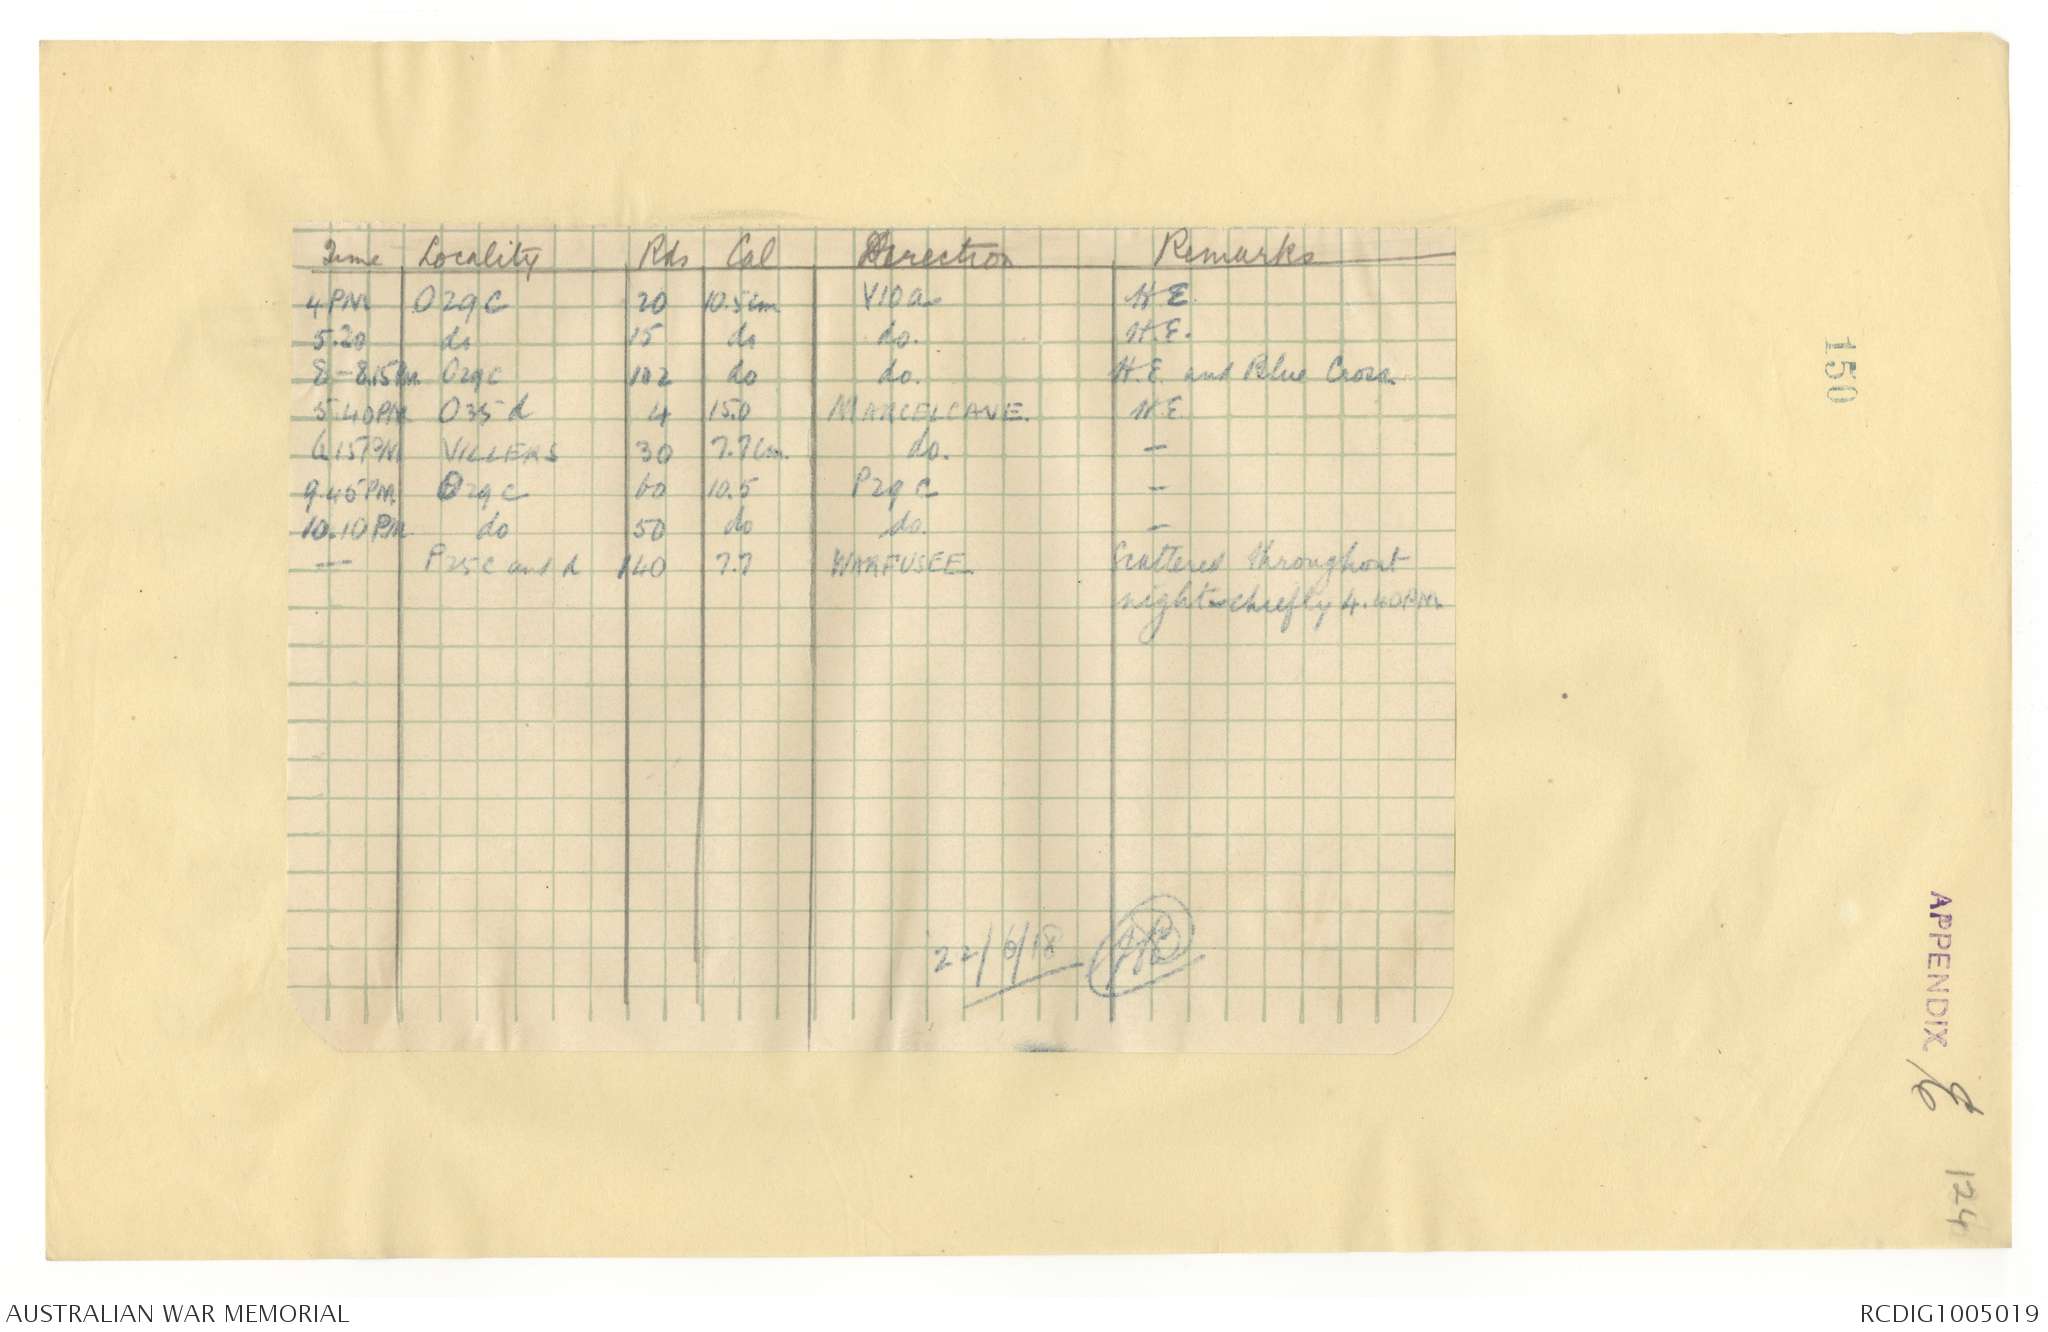 Time Locality Rds Cal Direction Remarks
4 PM O29c 20 10.5cm V10a H.E.
5.20 do 15 do do. H.E.
8-8.15PM O29c 102 do do. H.E. and Blue Cross.
5.40PM O35d 4 15.0 MARCELCAVE. H.E.
6.15PM VILLERS 30 7.7cm. do. —
9.45PM O29c 60 10.5 P29c —
10.10PM do 50 do do. —
— P25c and d 140 7.7 WARFUSEE. Scattered throughout
night - chiefly 4.40PM.
22/6/18
150
APPENDIX
124
AUSTRALIAN WAR MEMORIAL
RCDIG1005019